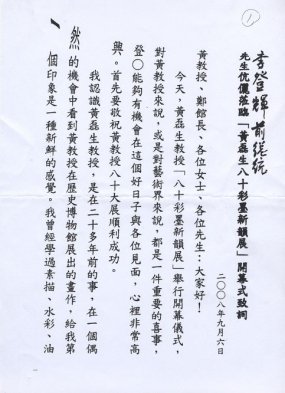 ①
李登輝前總統
先生伉儷蒞臨「黃磊生八十彩墨新韻展」開幕式致詞
二〇〇八年九月六日
黃教授、鄭館長、各位女士、各位先生：大家好！
今天，黃磊生教授「八十彩墨新韻展」舉行開幕儀式，
對黃教授來說，或是對藝術界來說，都是一件重要的喜事，
登〇能夠有機會在這個好日子與各位見面，心裡非常高
興。首先要敬祝黃教授八十大展順利成功。
我認識黃磊生教授，是在二十多年前的事，在一個偶
然
的機會中看到黃教授在歷史博物館展出的畫作，給我第
一
個印象是一種新鮮的感覺。我曾經學過素描、水彩、油